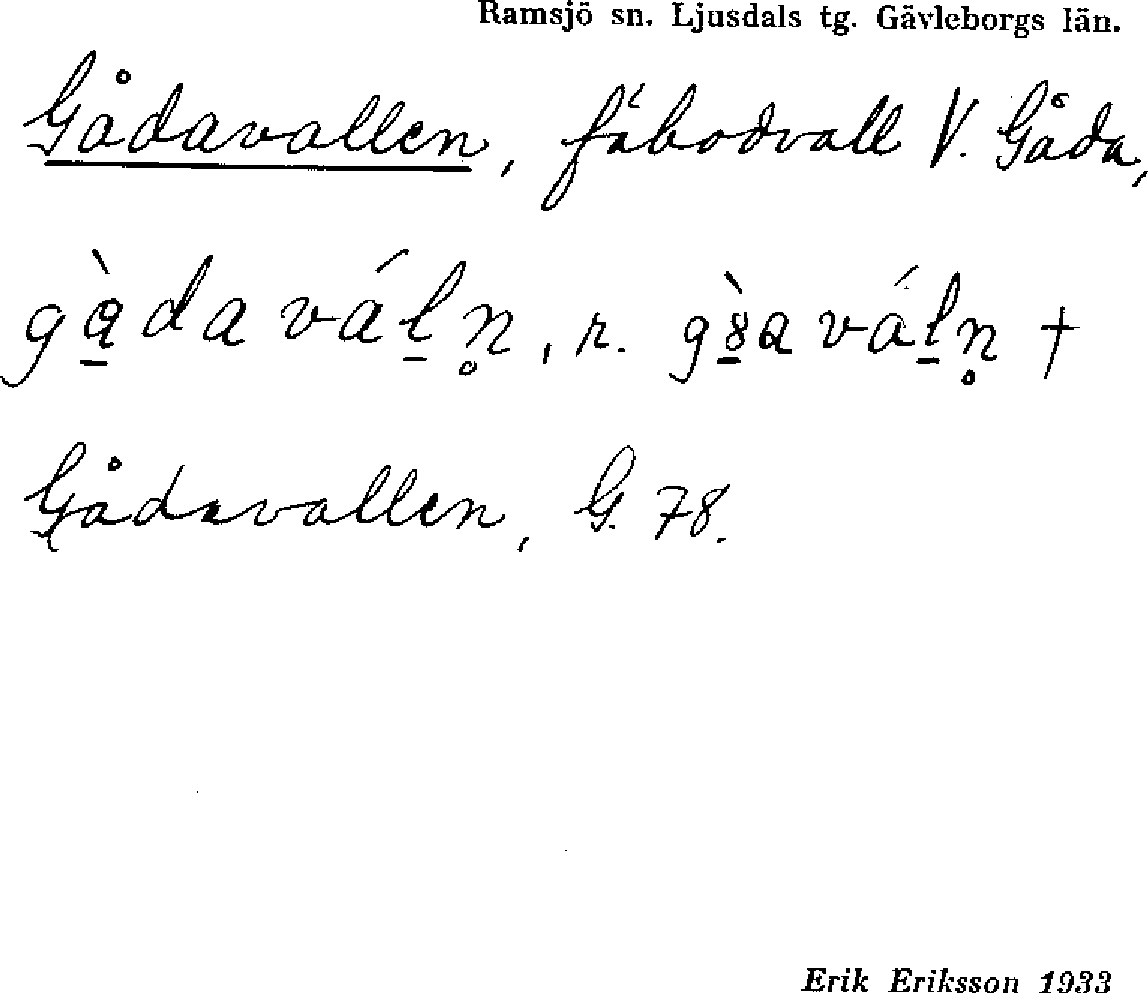 Ramsjö sn. Ljusdals tg. Gävleborgs län.
Gådavallen, fäbodvall V. Gåda,
gàdaváḻn̥, r. gò̱aváḻn̥ †
Gådavallen, G. 78.
Erik Eriksson 1933